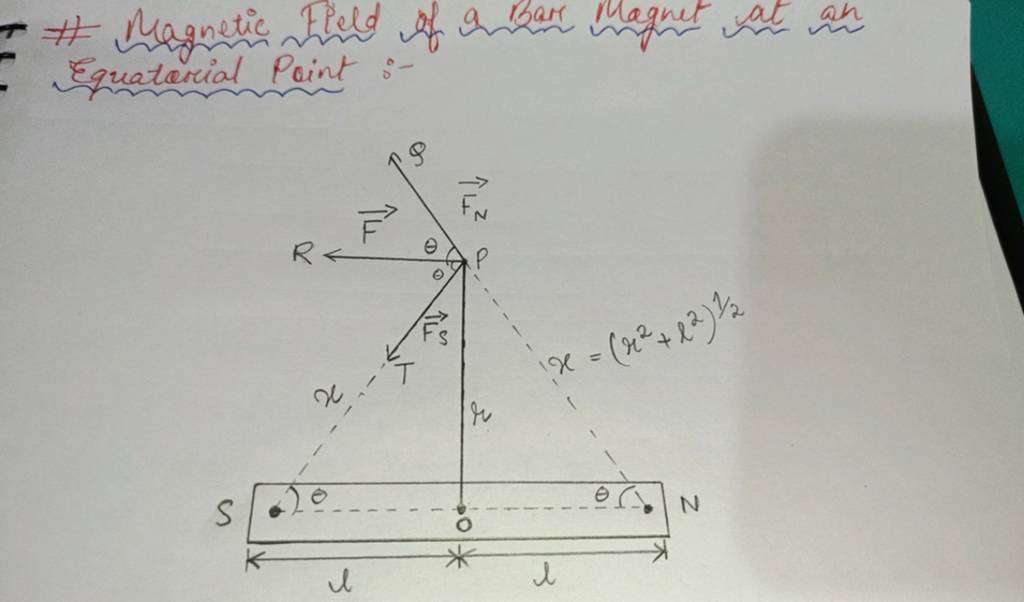 # Magnetic Field of a Bar Magnet at an
Equatorial Point :-
Q
F_N
F
R
θ
P
θ
F_S
T
x
x = (r² + l²)^1/2
r
S
θ
θ
N
O
l
l